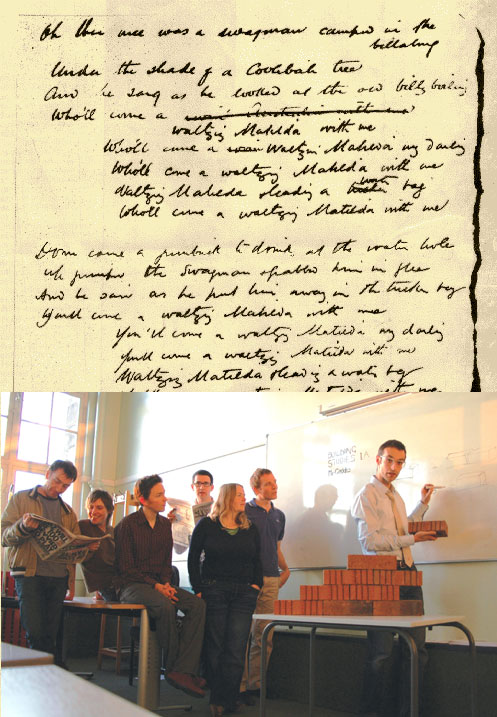 Oh there once was a swagman camped in the
billabong
Under the shade of a Coolibah tree
And he sang as he looked at the old billy boiling
Who'll come a
waltzing Matilda with me
Who'll come a waltzing Matilda my darling
Who'll come a waltzing Matilda with me
Waltzing Matilda leading a water bag
Who'll come a waltzing Matilda with me
Down came a jumbuck to drink at the water hole
Up jumped the swagman grabbed him in glee
And he sang as he put him away in the tucker bag
You'll come a waltzing Matilda with me
You'll come a waltzing Matilda my darling
You'll come a waltzing Matilda with me
Waltzing Matilda leading a water bag
BUILDING
STUDIES 1A